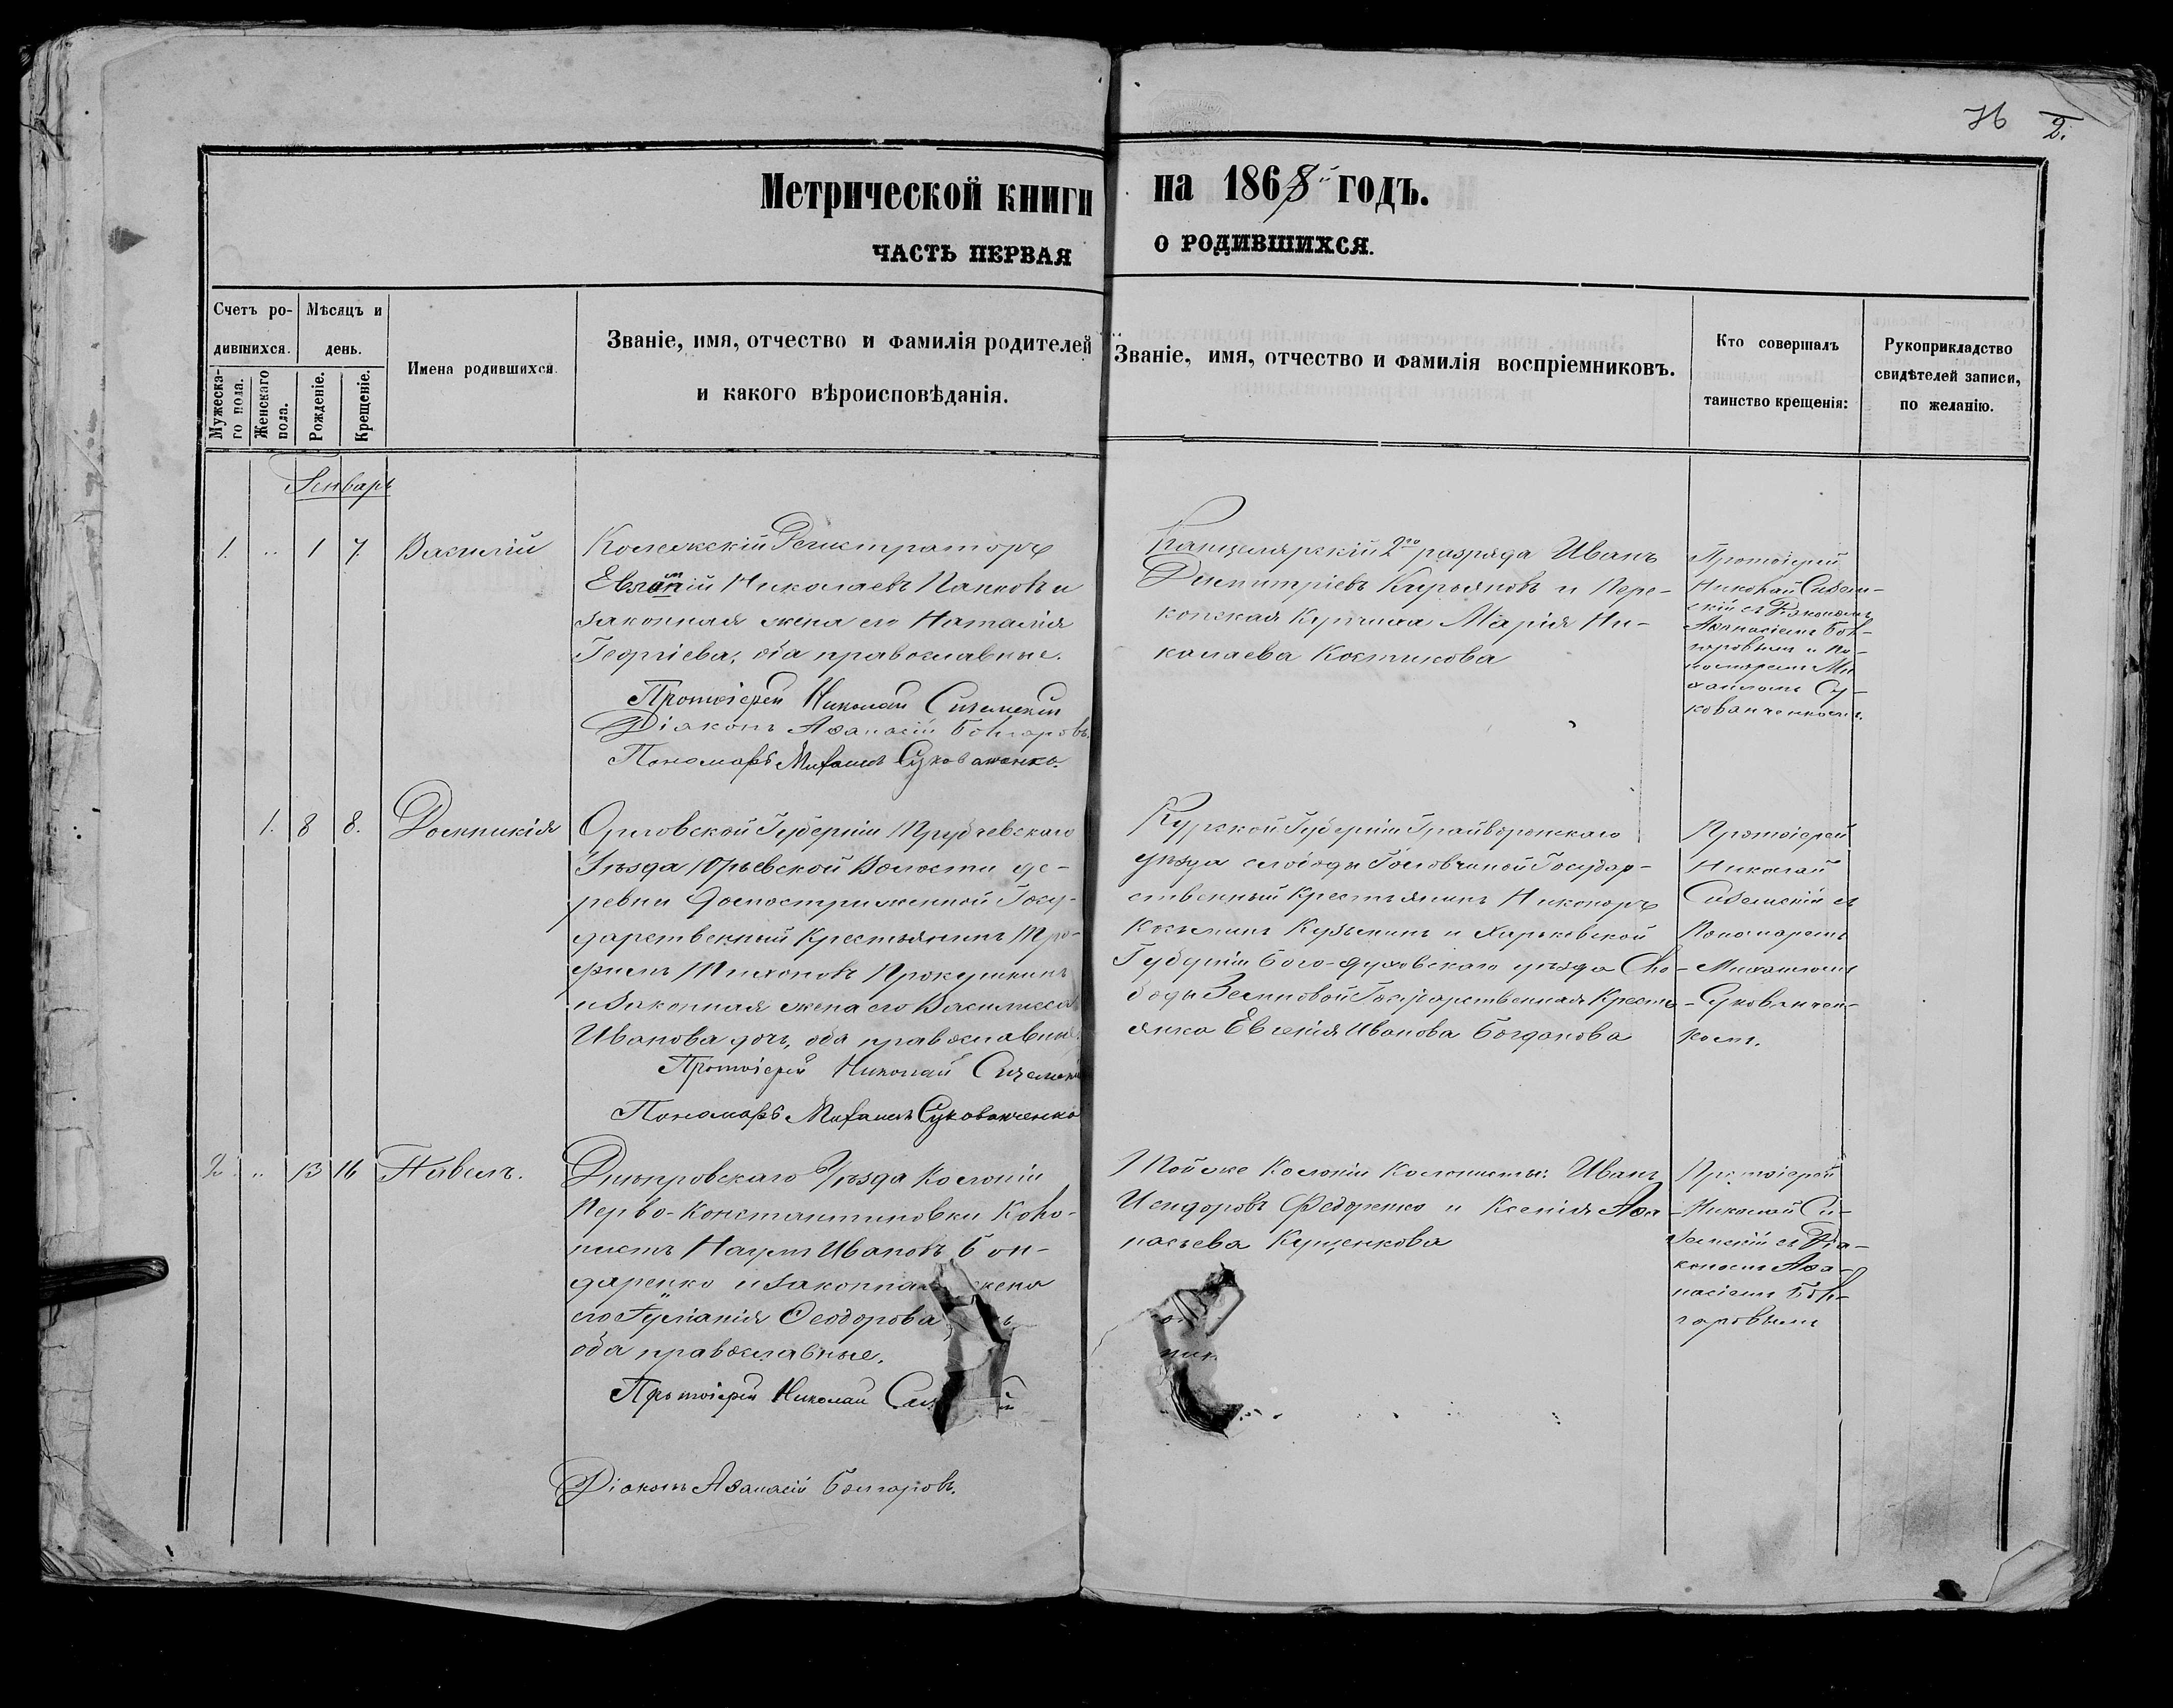 76 2.
Метрической книги на 1868й годъ.
ЧАСТЬ ПЕРВАЯ О РОДИВШИХСЯ.
Счетъ ро-
дившихся.
Мужеска-
го пола.
Женскаго
пола.
Мѣсяцъ и
день.
Рожденіе.
Крещеніе.
Имена родившихся.
Званіе, имя, отчество и фамилія родителей
и какого вѣроисповѣданія.
Званіе, имя, отчество и фамилія воспріемниковъ.
Кто совершалъ
таинство крещенія:
Рукоприкладство
свидѣтелей записи,
по желанію.
Январь
1. .. 1 7. Василій
Коллежскій Регистраторъ
Николаевъ Папковъ и
законная жена его Наталія
Георгіева, оба православные.
Протоіерей Николай Сиземскій
Діаконъ Аѳанасій Болгаровъ.
Пономарь Михаилъ Сукованченко.
Канцелярскій 2го разряда Иванъ
Димитріевъ Кирьяновъ и Пере-
копская Купчиха Марія Ни-
колаева Костикова
Протоіерей
Николай Сизем-
скій съ Діакономъ
Аѳанасіемъ Бол-
гаровымъ и По-
номаремъ Ми-
хаиломъ Су-
кованченкомъ.
1. 8 8. Домникія
Орловской Губерніи Трубчевскаго
Уѣзда Юрьевской Волости де-
ревни Госу-
дарственный Крестьянинъ Тро-
фимъ Тихоновъ Прокушкинъ
и законная жена его Василисса
Иванова дочь, оба православные.
Протоіерей Николай Сиземскій
Пономарь Михаилъ Сукованченко
Курской Губерніи Грайворонскаго
уѣзда слободы Головчиной Государ-
ственный Крестьянинъ Никоноръ
Козьминъ Кузькинъ и Харьковской
Губерніи Бого-духовскаго уѣзда Сло-
боды Государственная Кресть-
янка Евгенія Иванова Богданова
Протоіерей
Николай
Сиземскій съ
Пономаремъ
Михаиломъ
Сукованчен-
комъ.
2. .. 13 16 Павелъ.
Днѣпровскаго Уѣзда Колоніи
Перво-Константиновки Коло-
нистъ Наумъ Ивановъ Бон-
даренко и законная жена
его Гуліанія Ѳеодорова
оба православные.
Протоіерей Николай
Діаконъ Аѳанасій Болгаровъ.
Той же Колоніи Колонисты: Иванъ
Исидоровъ Федоренко и Ксенія Аѳа-
насьева Кущенкова
Протоіерей
Николай Си-
земскій съ Діа-
кономъ Аѳа-
насіемъ Бол-
гаровымъ